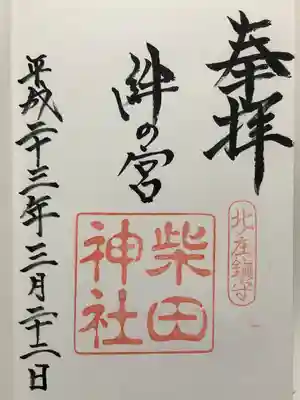 奉拝
北庄鎮守
絆の宮
柴田神社
平成二十三年三月二十二日